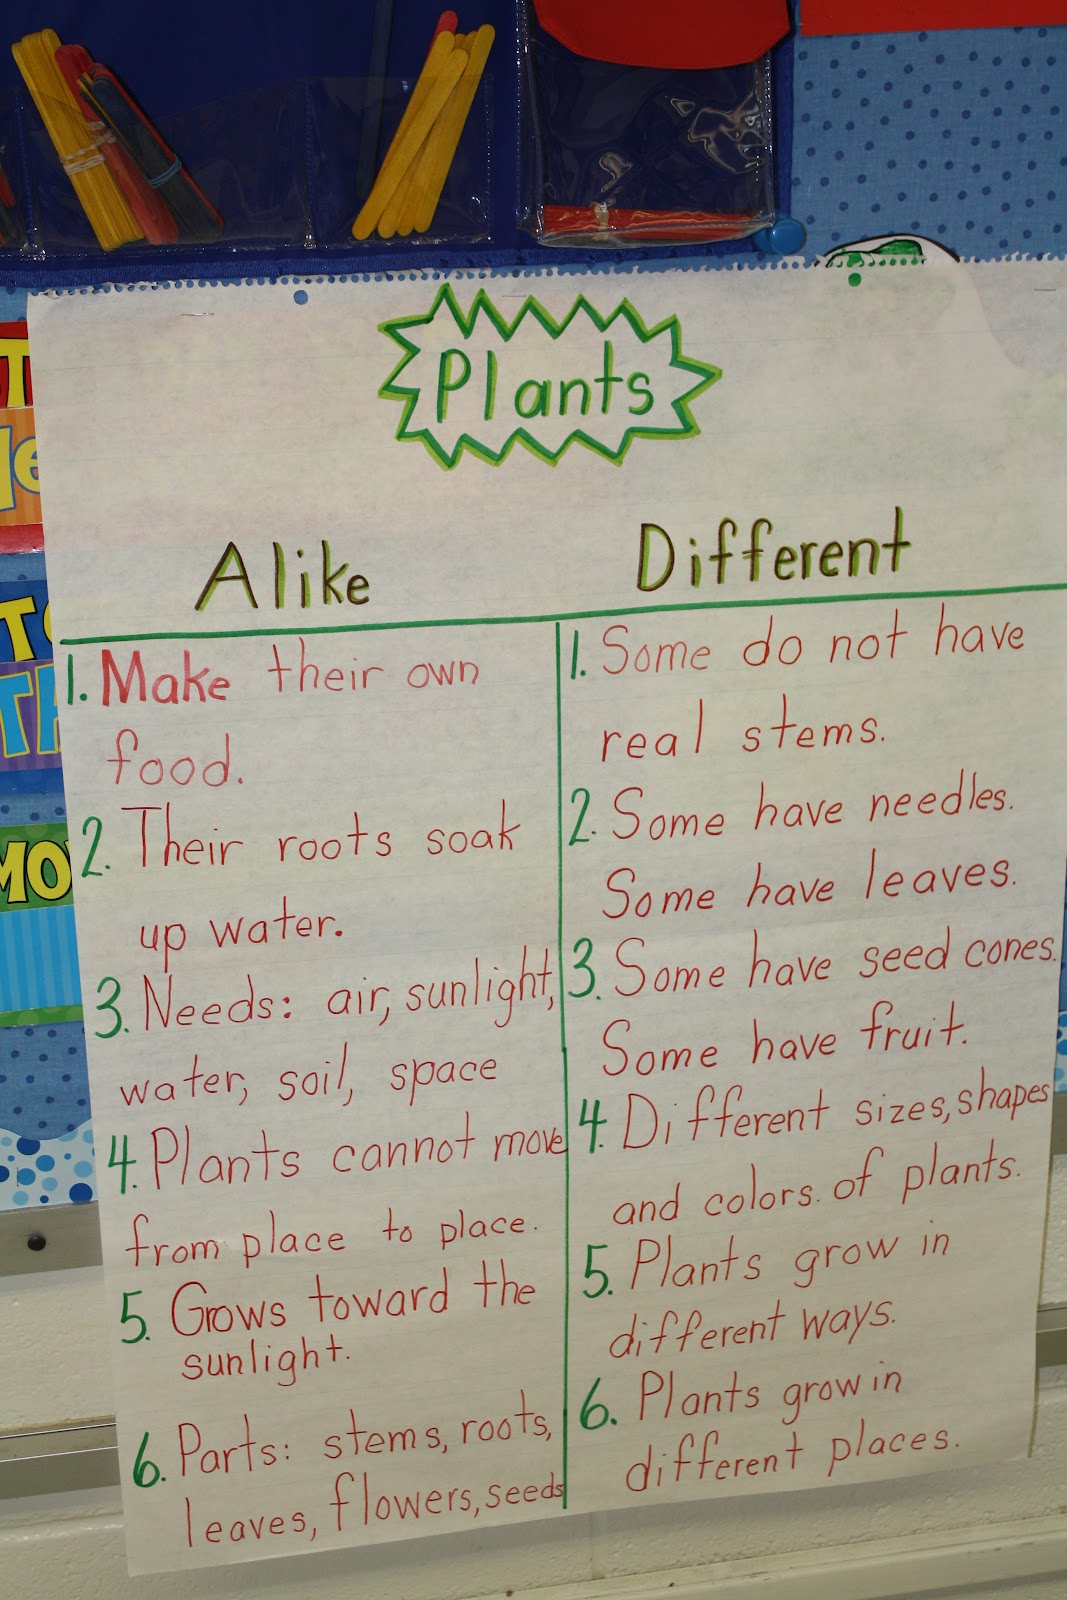 Plants
Alike
1. Make their own
food.
2. Their roots soak
up water.
3. Needs: air, sunlight,
water, soil, space
4. Plants cannot move
from place to place.
5. Grows toward the
sunlight.
6. Parts: stems, roots,
leaves, flowers, seeds
Different
1. Some do not have
real stems.
2. Some have needles.
Some have leaves.
3. Some have seed cones.
Some have fruit.
4. Different sizes, shapes
and colors. of plants.
5. Plants grow in
different ways.
6. Plants grow in
different places.